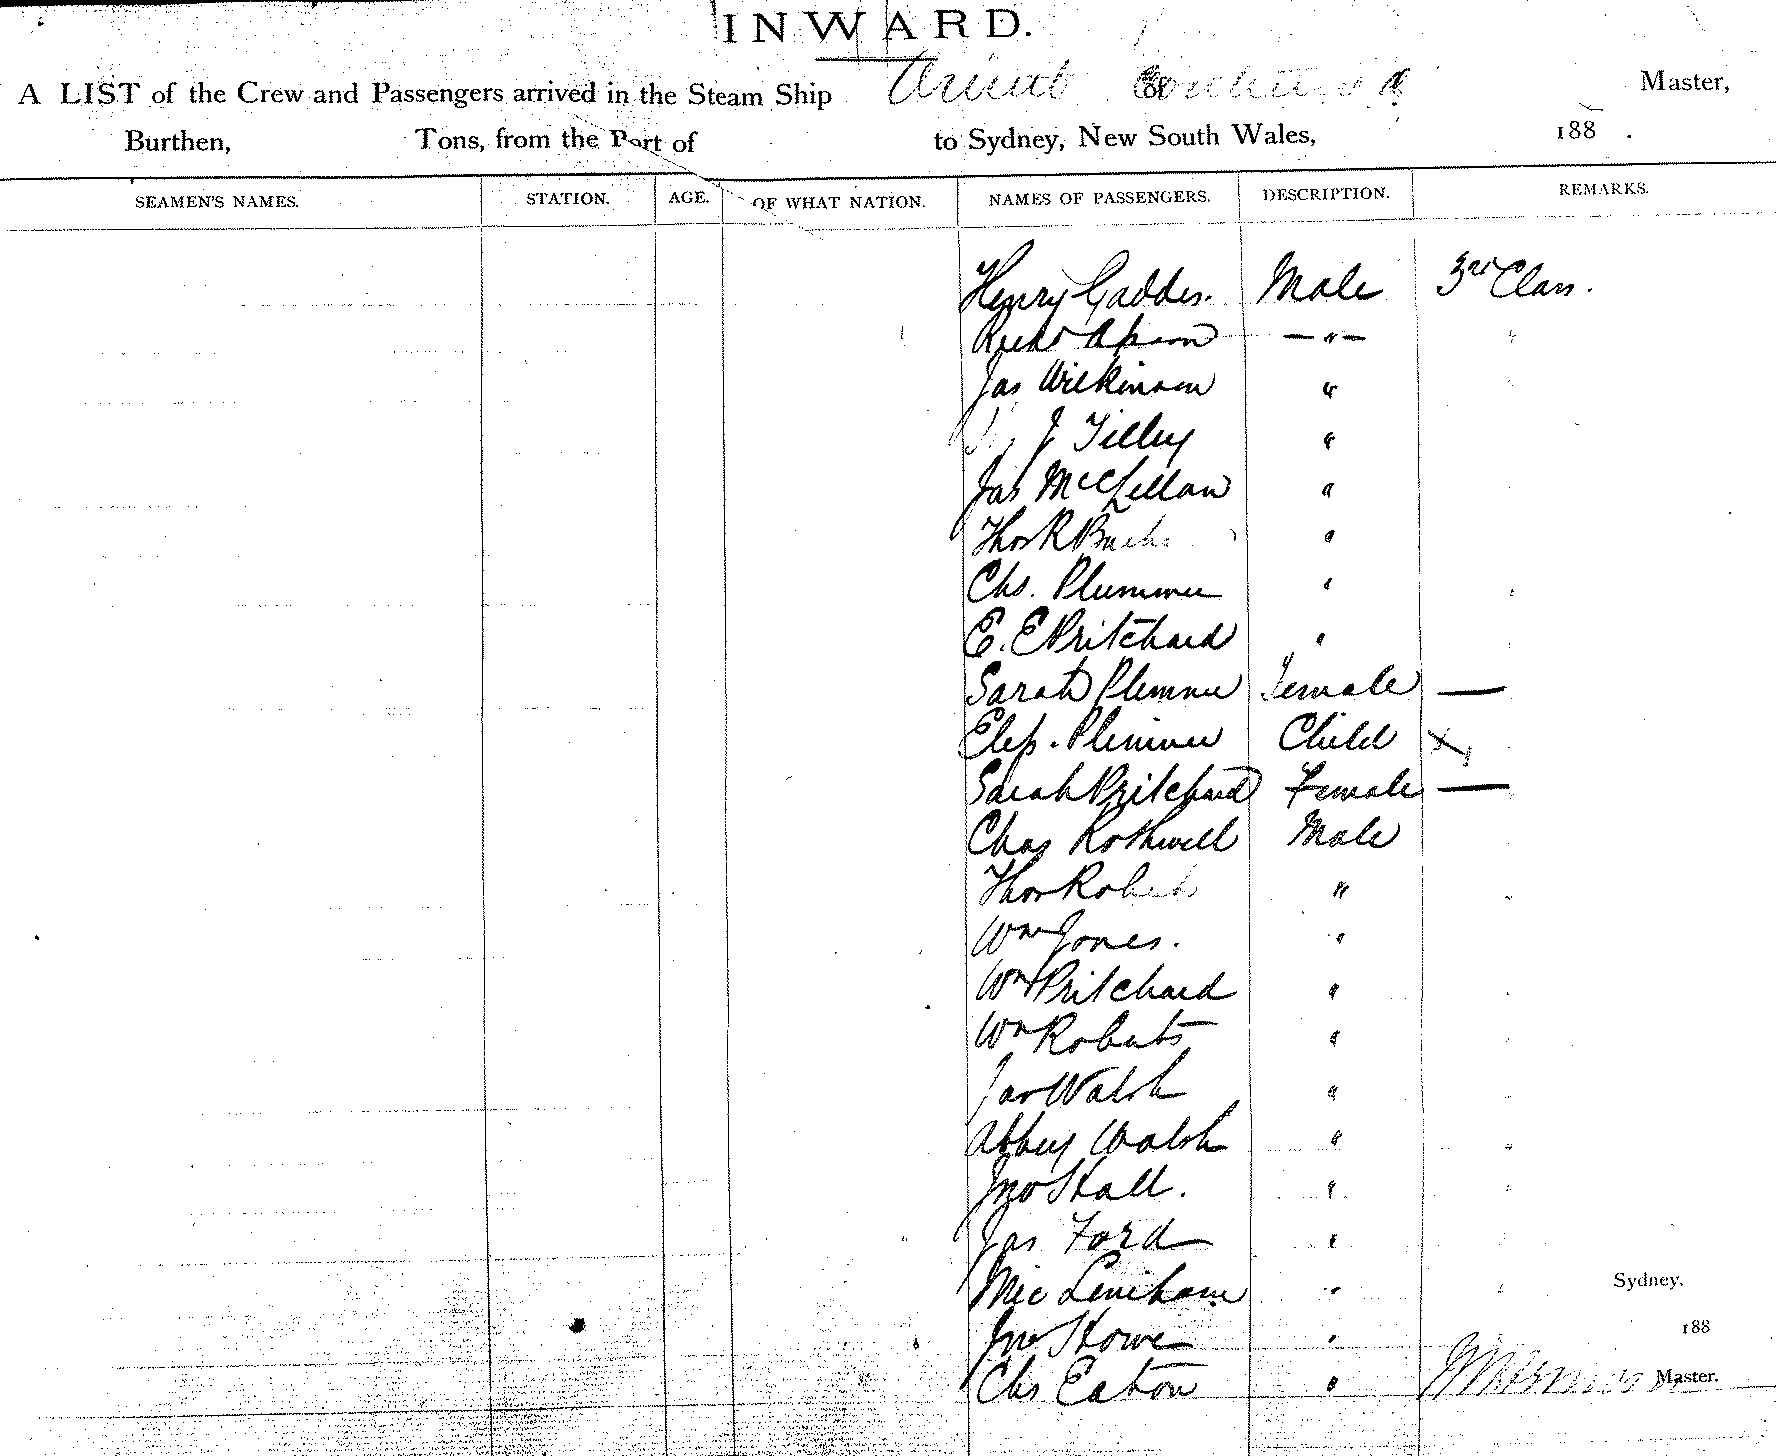 INWARD.
A LIST of the Crew and Passengers arrived in the Steam Ship Orient Continued Master,
Burthen, Tons, from the Port of to Sydney, New South Wales, 188 .
SEAMEN'S NAMES. STATION. AGE. OF WHAT NATION. NAMES OF PASSENGERS. DESCRIPTION. REMARKS.
Henry Gaddes. Male 3rd Class.
Apson — " —
Jas Wilkinson "
J Tilley "
Jas McLellan "
Thos R "
Chs. Plummer "
E. E Pritchard "
Sarah Plummer Female —
Plimmer Child X
Sarah Pritchard Female —
Chas Rothwell Male
Thos Roberts "
Wm Jones. "
Wm Pritchard "
Wm Roberts "
Jas Walsh "
Abbey Walsh "
Jno Hall. "
Jas Ford "
Mic Lenihan "
Sydney.
Jno Howe "
188
Chs Eaton "
Master.